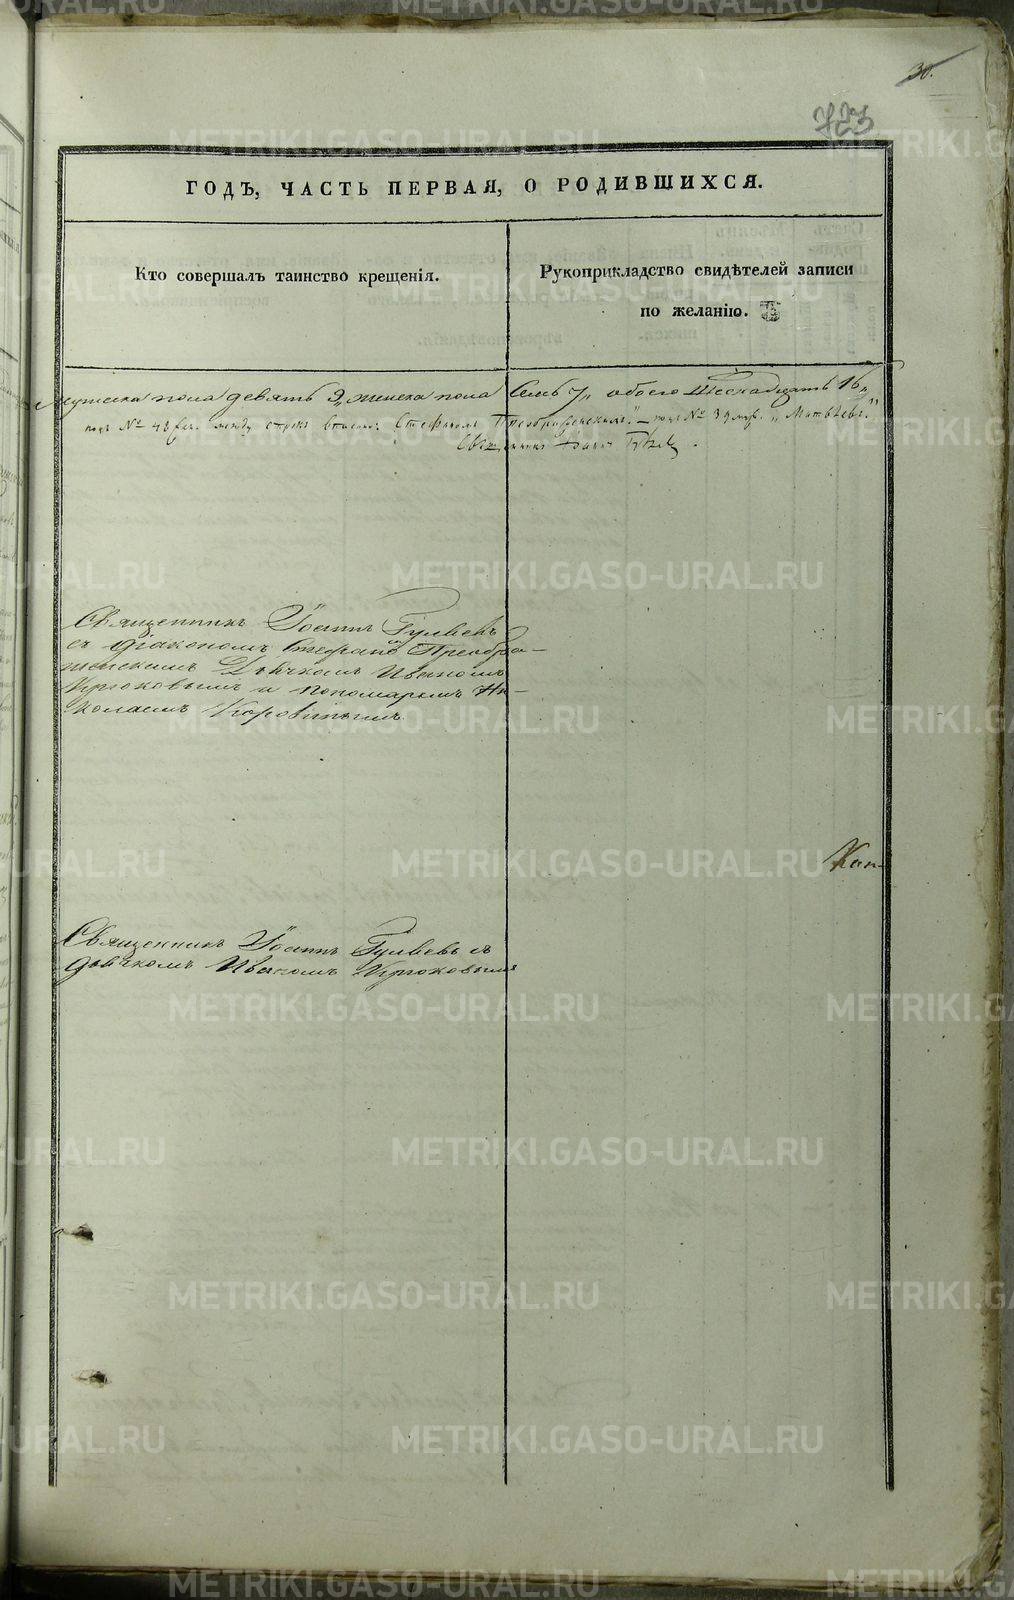 30.
723
ГОДЪ, ЧАСТЬ ПЕРВАЯ, О РОДИВШИХСЯ.
Кто совершалъ таинство крещенія.
Рукоприкладство свидѣтелей записи
по желанію.
мужеска пола девять 9, женска пола семь 7, обоего шеснадцать 16,
подъ № 42 между строкъ Стефаномъ Преображенскимъ." – подъ № 39 „Матвѣевъ."
Священникъ Іоаннъ
Священникъ Іоаннъ Гуляевъ
съ діакономъ Стефаномъ Преобра–
женскимъ Дьячкомъ Иваномъ
Крюковымъ и пономаремъ Ни–
колаемъ Коровинымъ.
Кон–
Священникъ Іоаннъ Гуляевъ съ
дьячкомъ Иваномъ Крюковымъ
METRIKI.GASO-URAL.RU